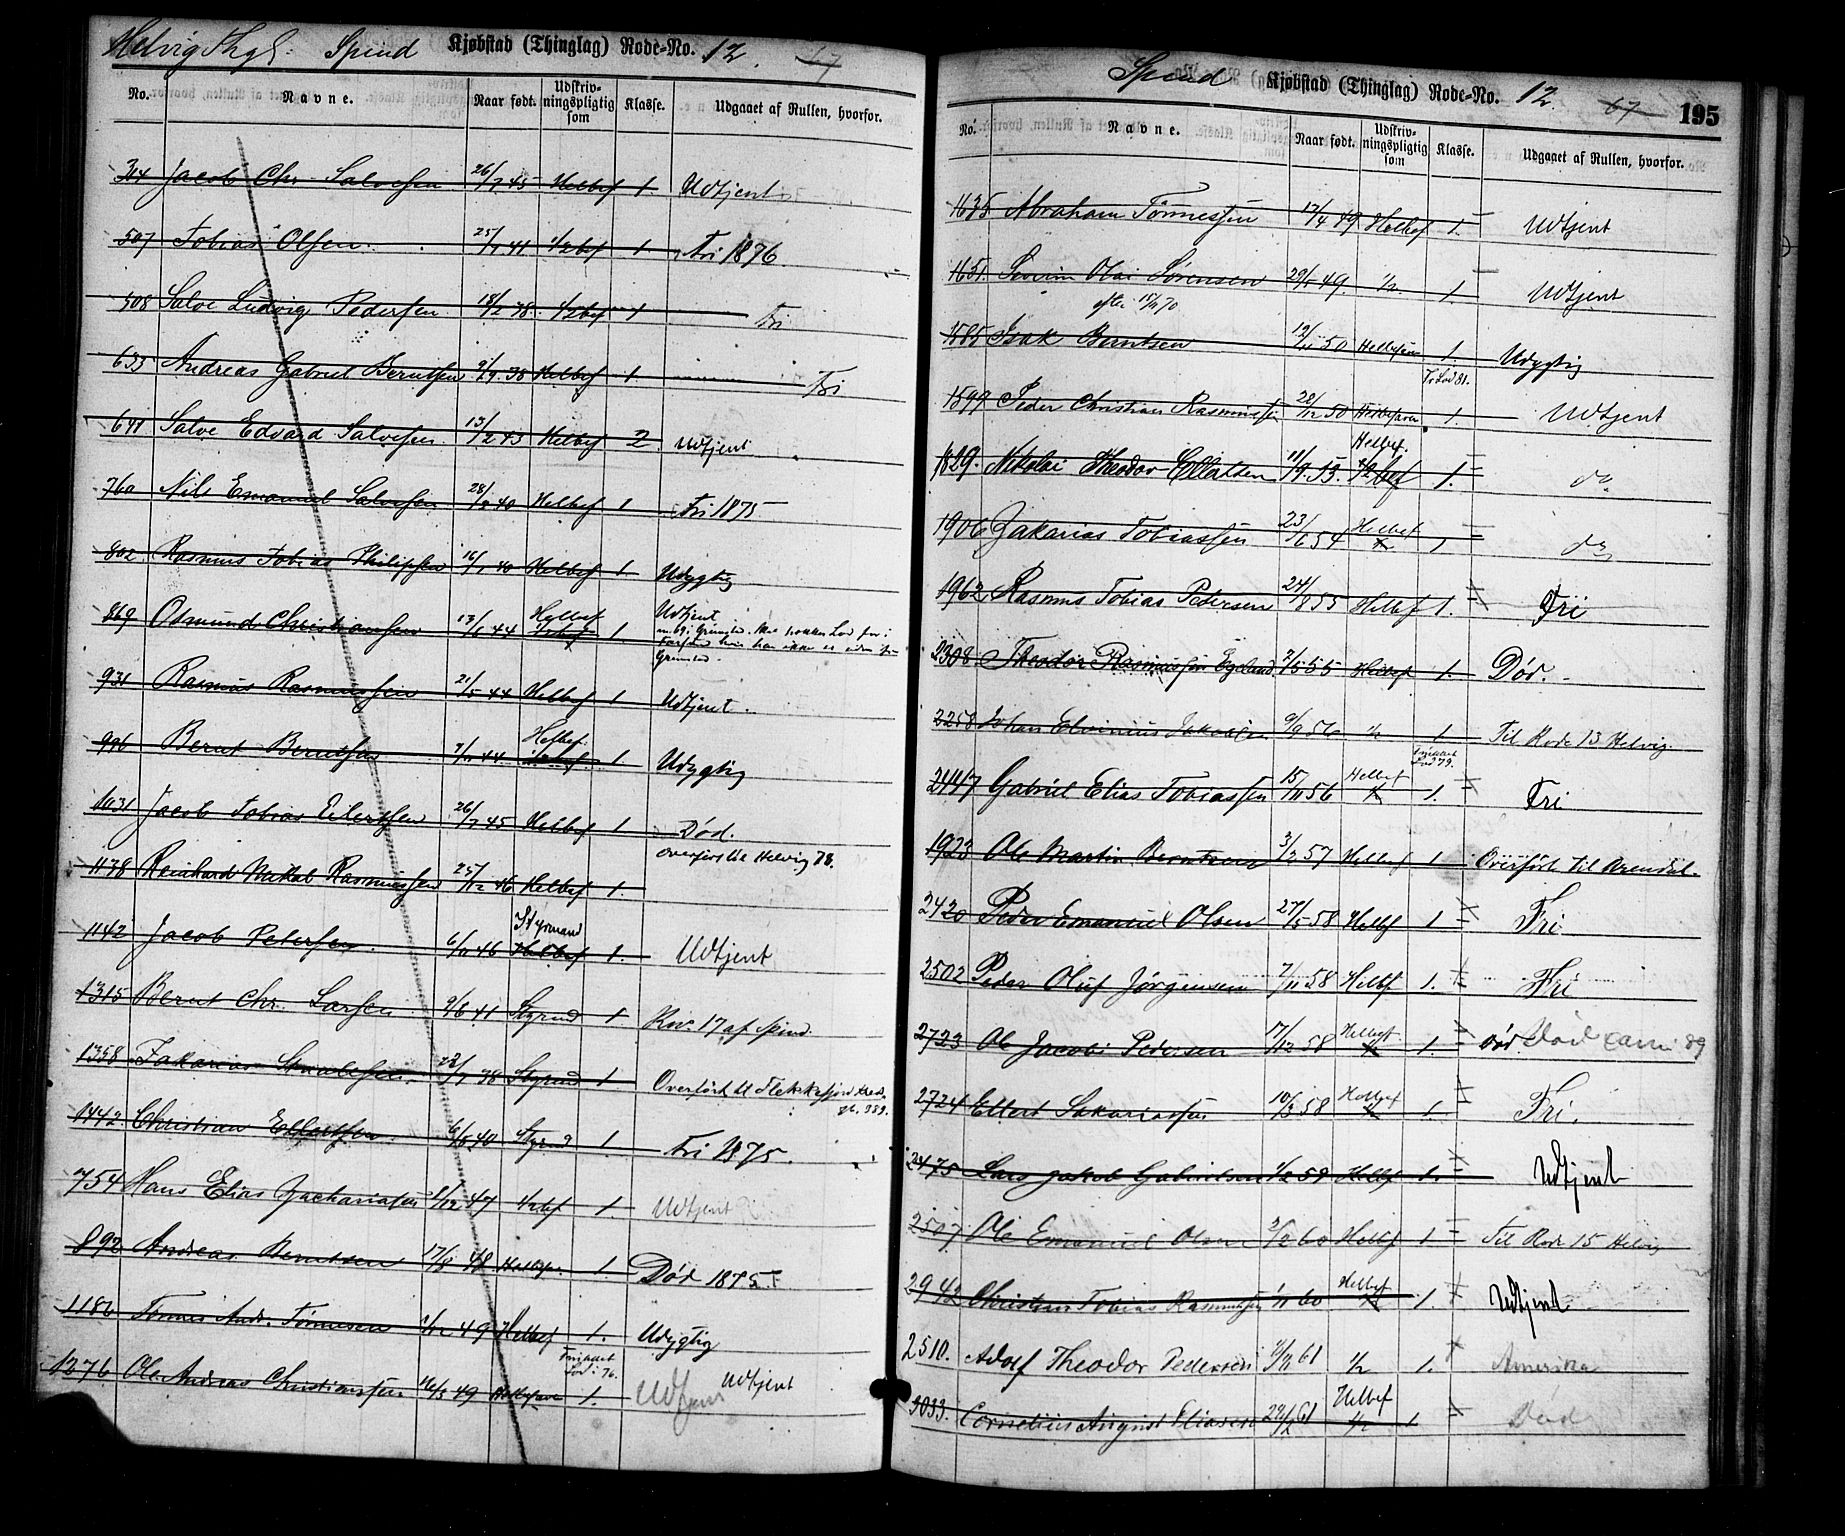 Helvig Thgl. Spind Kjøbstad (Thinglag) Rode-No. 12. 67
No. Navne. Naar født. Udskrivningspligtig som Klasse. Udgaaet af Rullen, hvorfor.
344 Jacob Chr. Salvesen 26/7 45 Helbef 1. Udtjent
507 Tobias Olsen 25/1 41 1/2bef 1. Fri 1876
508 Salve Ludvig Pedersen 18/2 38 1/2bef 1 Fri
633 Andreas Gabriel Berntsen 9/9 38 Helbef 1. Fri
691 Salve Edvard Salvesen 13/2 43 Helbef 2. Udtjent
760 Nils Emanuel Salvesen 28/2 40 Helbef 1 Fri 1875
802 Rasmus Tobias Philipsen 16/1 40 Helbef 1 Udygtig
869 Osmund Christiansen 13/5 44 Helbef 1/2bef 1. Udtjent
931 Rasmus Rasmussen 21/5 44 Helbef 1 Udtjent.
996 Bernt Berntsen 7/11 44 Helbef. 1 Udygtig
1031 Jacob Tobias Eilertsen 26/7 45 Helbef 1 Død.
1138 Reinhard Mikal Rasmussen 25/12 46 Helbef 1. overført til Helvig 78.
1142 Jacob Petersen 6/11 46 Styrmand Helbef 1. Udtjent
1315 Bernt Chr. Larsen 9/6 41 Styrmd 1. Rov. 17 af Spind.
1358 Zakarias 22/7 38 Styrmd 1 Overført til Flekkefjord Kreds
1442 Christian Ellertsen 6/5 40 Styrmd 1 Fri 1875.
754 Hans Elias Zachariasen /12 47 1/2bef 1. Udtjent
892 Andreas Berntsen 17/8 48 1. Død 1875
1186 Tønnes Andr. Tønnesen /12 49 Helbef 1. Udygtig
1276 Ole Andreas Christianssen 16/5 49 1. Udtjent Udtjent
Spind Kjøbstad (Thinglag) Rode-No. 12 67 195
No. Navne. Naar født. Udskrivningspligtig som Klasse. Udgaaet af Rullen, hvorfor.
1635 Abraham Tønnessen 17/4 49 Helbef 1. Udtjent
1651. Severin Olai Sørensen 29/5 49. 1/2. 1. Udtjent
efter 15/11 70
1585 Isak Berntsen 12/11 50 1. Udygtig
1599 Peder Christian Rasmussen 28/12 50 1. Udtjent
1829. Nikolai Theodor Ellertsen 11/9 53. Helbef. 1/2bef 1. do
1906 Zakarias Tobiassen 23/6 54 Helbef 1 do
1962 Rasmus Tobias Pedersen 24/8 55 Helbef 1. Fri
2308. Theodor Rasmussen Egeland 2/5 55 Helbef 1. Død.
2258 Johan Elvinius Jakobsen 9/9 56 1/2 1 Til Rode 13 Helvig
2447 Gabriel Elias Tobiassen 15/11 56 Helbef 1. Fri
1923 Ole Martin Berntsen 3/2 57 Helbef 1. Overført til Arendal.
2420 Peder Emanuel Olsen 27/5 58 Helbf 1 Fri
2502 Peder Oluf Jørgensen 7/11 58 Helbf 1. Fri
2723 Ole Jacobi Pedersen 17/12 58 Helbef 1. død Død 89
2724 Ellert Sakariassen 10/3 58 Helbef 1. Fri.
2475 Lars Jakob Gabrielsen 1/2 59 Helbf 1. Udtjent
2507 Ole Emanuel Olsen 3/2 60 Helbef 1 Til Rode 15 Helvig
2942 Christian Tobias Rasmussen 1/11 60 Helbef 1. Udtjent
2510. Adolf Theodor Pedersen 61 1/2 1. Amerika
3033. Cornelius August Eliasen 29/2 61 Helbef 1/2 1 Død